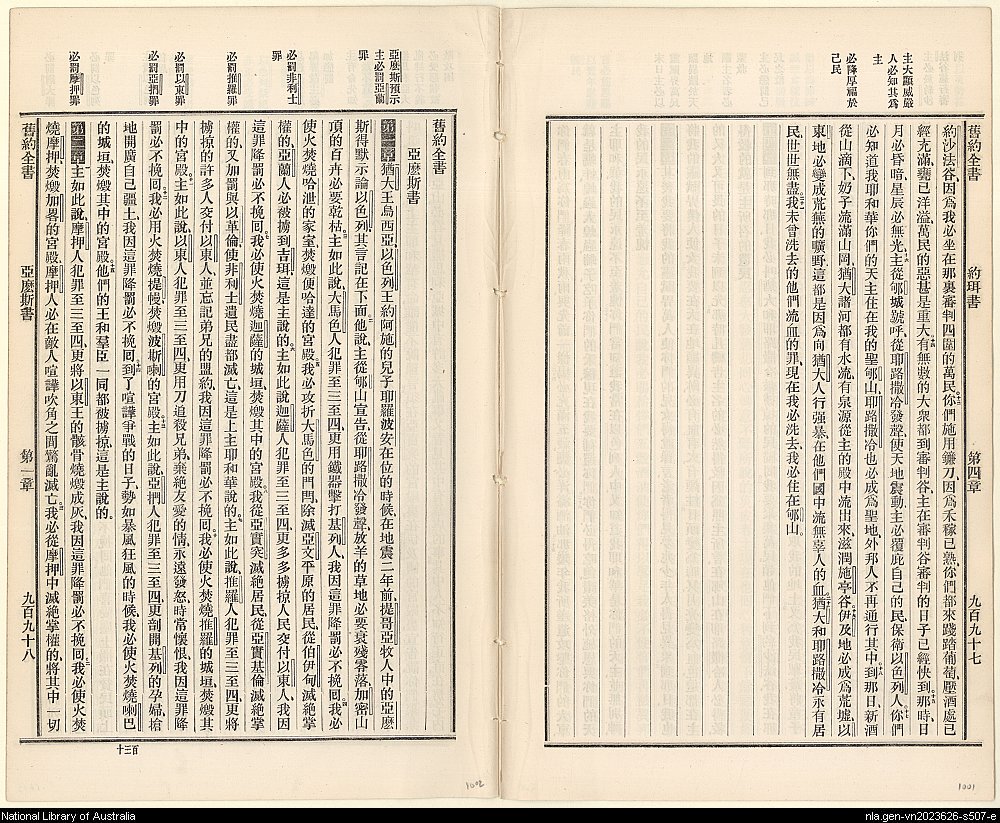 舊約全書 約珥書 第四章 九百九十七
主大顯威嚴
人必知其爲
主
必降厚福於
己民
約沙法谷因爲我必坐在那裏審判四圍的萬民你們施用鐮刀因爲禾稼已熟你們都來踐踏葡萄壓酒處已
經充滿甕已洋溢萬民的惡甚是重大有無數的大衆都到審判谷主在審判谷審判的日子已經快到那時日
月必昏暗星辰必無光主從郇城號呼從耶路撒冷發聲使天地震動主必覆庇自己的民保衛以色列人你們
必知道我耶和華你們的天主在在我的聖郇山耶路撒冷也必成爲聖地外邦人不再通行其中到那日新酒
從山滴下奶子流滿山岡猶大諸河都有水流有泉源從主的殿中流出來滋潤施亭谷伊及地必成爲荒墟以
東地必變成荒蕪的曠野這都是因爲向猶大人行强暴在他們國中流無辜人的血猶大和耶路撒冷永有居
民世世無盡我未曾洗去的他們流血的罪現在我必洗去我必住在郇山。
舊約全書
亞麽斯書
亞麽斯預示
主必罰亞蘭
罪
必罰非利士
罪
必罰推羅罪
必罰以東罪
必罰亞捫罪
必罰摩押罪
第一章猶大王烏西亞以色列王約阿施的兒子耶羅波安在位的時候在地震二年前提哥亞牧人中的亞麽
斯得默示論以色列其言記在下面他說主從郇山宣告從耶路撒冷發聲放羊的草地必要衰殘零落加密山
頂的百卉必要乾枯主如此說大馬色人犯罪至三至四更用鐵器擊打基列人我因這罪降罰必不挽回我必
使火焚燒哈泄的家室焚燬便哈達的宮殿我必攻折大馬色的門閂除滅亞文平原的居民從伯伊甸滅絕掌
權的亞蘭人必被擄到吉珥這是主說的主如此說迦薩人犯罪至三至四更多多擄掠人民交付以東人我因
這罪降罰必不挽回我必使火焚燒迦薩的城垣焚燬其中的宮殿我從亞實突滅絕居民從亞實基倫滅絕掌
權的又加罰與以革倫使非利士遺民盡都滅亡這是上主耶和華說的主如此說推羅人犯罪至三至四更將
擄掠的許多人交付以東人並忘記弟兄的盟約我因這罪降罰必不挽回我必使火焚燒推羅的城垣焚燬其
中的宮殿主如此說以東人犯罪至三至四更用刀追殺兄弟棄絕友愛的情永遠發怒時常懷恨我因這罪降
罰必不挽回我必用火焚燒提幔焚燬波斯喇的宮殿主如此說亞捫人犯罪至三至四更剖開基列的孕婦搶
地開廣自己疆土我因這罪降罰必不挽回到了喧譁爭戰的日子勢如暴風狂風的時候我必使火焚燒喇巴
的城垣焚燬其中的宮殿他們的王和羣臣一同都被擄掠這是主說的。
第二章主如此說摩押人犯罪至三至四更將以東王的骸骨燒燬成灰我因這罪降罰必不挽回我必使火焚
燒摩押焚燬加畧的宮殿摩押人必在敵人喧譁吹角之間驚亂滅亡我必從摩押中滅絕掌權的將其中一切
舊約全書 亞麽斯書 第一章 九百九十八
百三十
1002
1001
National Library of Australia
nla.gen-vn2023626-s507-e